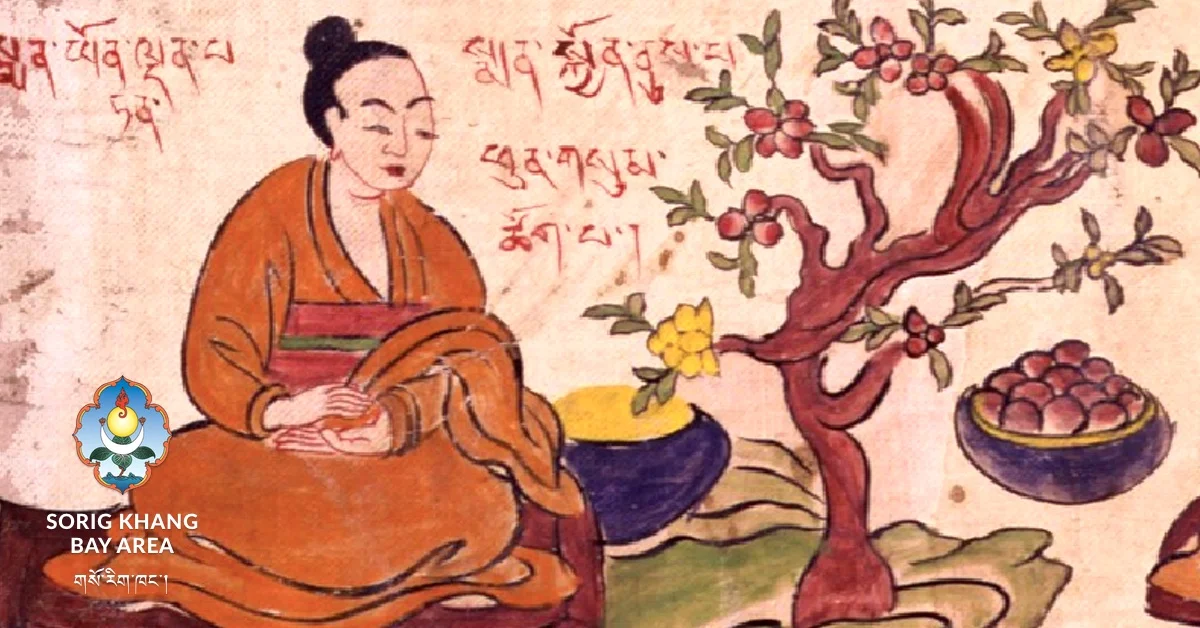 ཡོན་ལྡན་པ་
ཏན་
སྨན་ ནུས་པ་
ཕུན་གསུམ་
ཚོགས་པ།
SORIG KHANG
BAY AREA
གསོ་རིག་ཁང་།